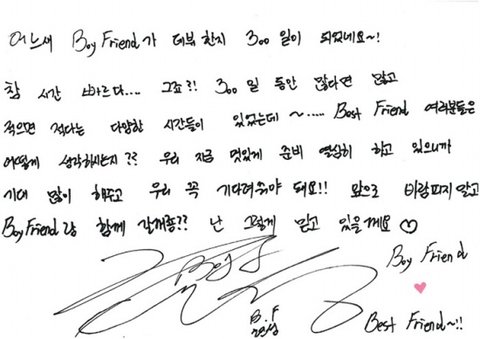 어느새 Boy Friend가 데뷔한지 300일이 되었네요~!
참 시간 빠르다.... 그죠?! 300일 동안 많다면 많고
적으면 적다는 다양한 시간들이 있었는데 ~..... Best Friend 여러분들은
어떻게 생각하시는지?? 우리 지금 멋있게 준비 열심히 하고 있으니까
기대 많이 해주고 우리 꼭 기다려줘야 돼요!! 앞으로 바람피지 말고
Boy Friend랑 함께 갈꺼죵?? 난 그렇게 믿고 있을께요 ♡
Boy Friend
♥
Best Friend~!!
B.F